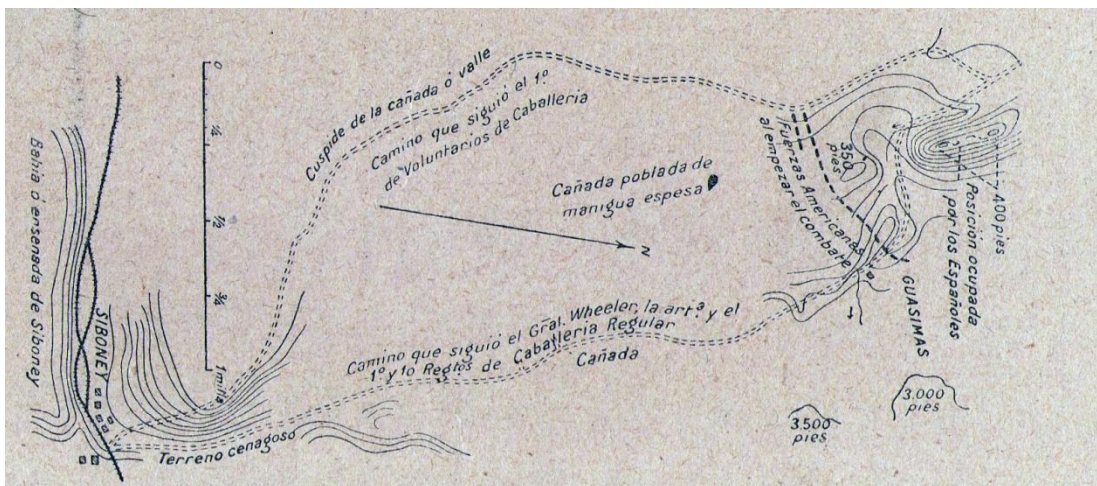 Bahia ó ensenada de Siboney
SIBONEY
0
1/4
1/2
3/4
1 milla
Terreno cenagoso
Cuspide de la cañada ó valle
Camino que siguió el 1º
de Voluntarios de Caballeria
Cañada poblada de
manigua espesa
N
Camino que siguió el Gral. Wheeler, la artª. y el
1º y 10 Regtos de Caballeria Regular
Cañada
Fuerzas Americanas
al empezar el combate
350
pies
400 pies
Posición ocupada
por los Españoles
GUASIMAS
3.000
pies
3.500
pies